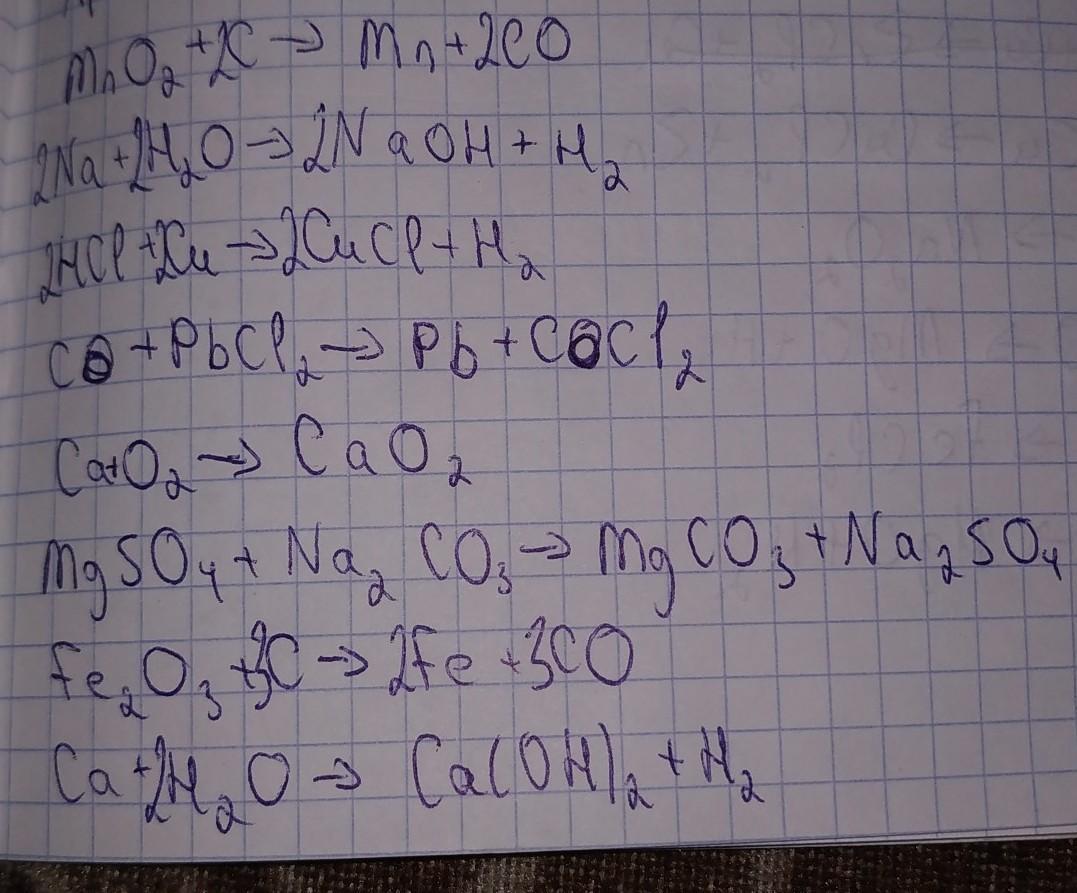 MnO₂ + 2C → Mn + 2CO
2Na + 2H₂O → 2NaOH + H₂
2HCl + 2Cu → 2CuCl + H₂
CO + PbCl₂ → Pb + COCl₂
Ca+O₂ → CaO₂
MgSO₄ + Na₂CO₃ → MgCO₃ + Na₂SO₄
Fe₂O₃ + 3C → 2Fe + 3CO
Ca + 2H₂O → Ca(OH)₂ + H₂